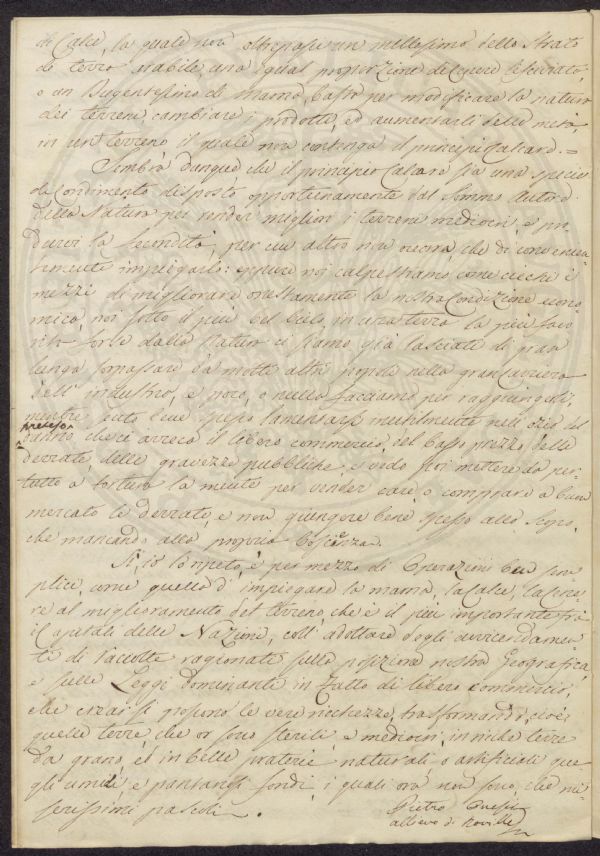 di Calce, la quale non oltrepassi un millesimo dello Strato
di terra arabile, una egual proporzione di cenere lisciviata,
o un Dugentesimo di Marna, basta per modificare la natura
dei terreni, cambiare i prodotti, ed aumentarli della metà
in un terreno il quale non contenga il principio Calcare. =
Sembra dunque che il principio Calcare sia una specie
di Condimento disposto opportunamente dal Sommo Autore
della Natura per render migliori i terreni mediocri, e pro
durvi la fecondità, per cui altro non occorra, che di convenien
temente impiegarlo: eppure noi calpestiamo come ciechi i
mezzi di migliorare onestamente la nostra Condizione econo
mica, noi sotto il più bel Cielo, in una terra la più favo
rita forse dalla Natura ci siamo già lasciati di gran
lunga sorpassare da molti altri popoli nella gran carriera
dell' industria, e poco, o nulla facciamo per raggiungerli;
mentre sento bene spesso lamentarsi inutilmente nell' ozio del
preteso
danno, che ci arreca il libero commercio, del basso prezzo delle
derrate, delle gravezze pubbliche, e vedo poi mettere da per
tutto a tortura la mente per vender care, o comprare a buon
mercato le derrate, e non giungere bene spesso allo scopo,
che mancando alla propria Coscienza.
Sì, io lo ripeto, è per mezzo di Operazioni ben sem
plici, come quelle d' impiegare la marna, la Calce, la cene
re al miglioramento del terreno, che è il più importante fra
i Capitali delle Nazioni, coll' adottare degli avvicendamen
ti di raccolte ragionate sulla posizione nostra Geografica,
e sulle Leggi dominanti in fatto di libero commercio,
che si possono le vere ricchezze, trasformando, cioè
quelle terre, che or sono sterili e mediocri, in ricche terre
da grano, ed in belle praterie naturali o artificiali que
gli umidi, e pantanosi fondi, i quali ora non sono, che mi
serissimi pascoli.
Pietro
allievo di Roville